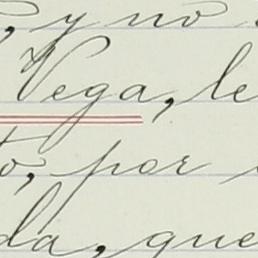 , y no
Vega, le
o, por
da, que